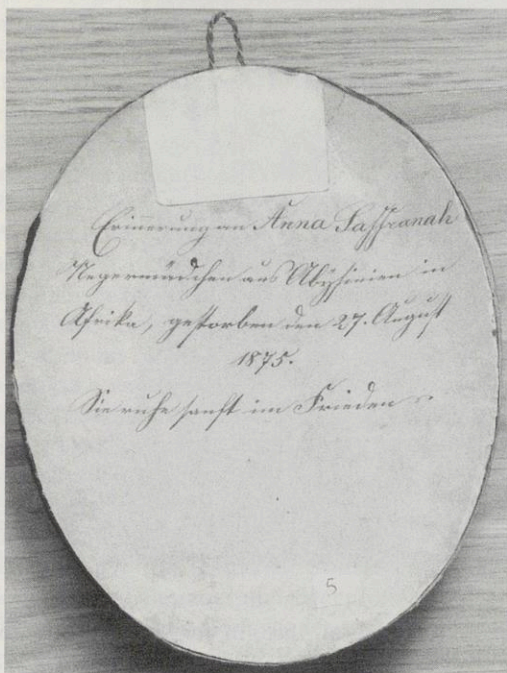 Erinnerung an Anna Saffranah
Negermädchen aus Abyßinien in
Afrika, gestorben den 27. August
1875.
Sie ruhe sanft im Frieden
5